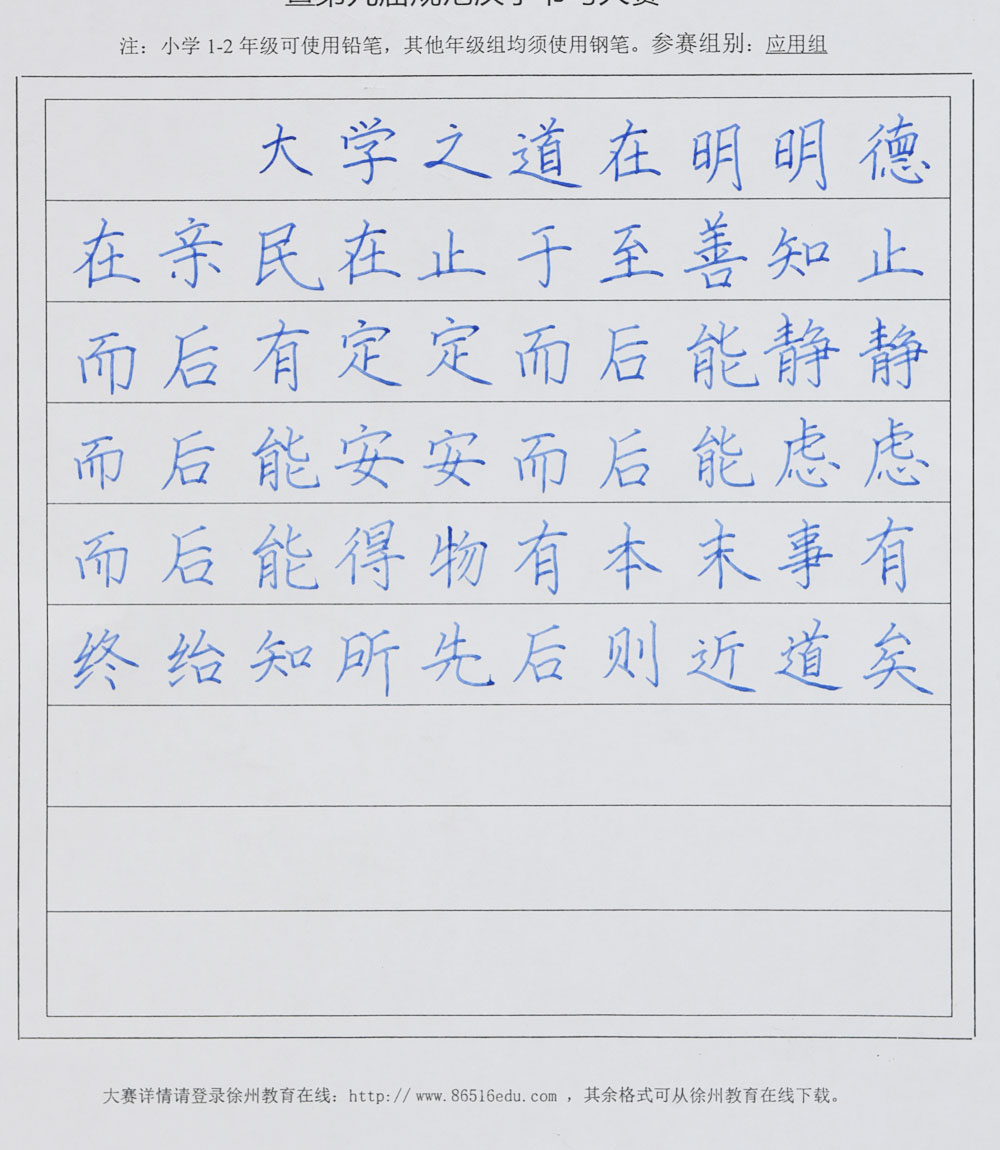 注：小学 1-2 年级可使用铅笔，其他年级组均须使用钢笔。参赛组别：应用组
大学之道在明明德
在亲民在止于至善知止
而后有定定而后能静静
而后能安安而后能虑虑
而后能得物有本末事有
终绐知所先后则近道矣
大赛详情请登录徐州教育在线：http://www.86516edu.com ，其余格式可从徐州教育在线下载。